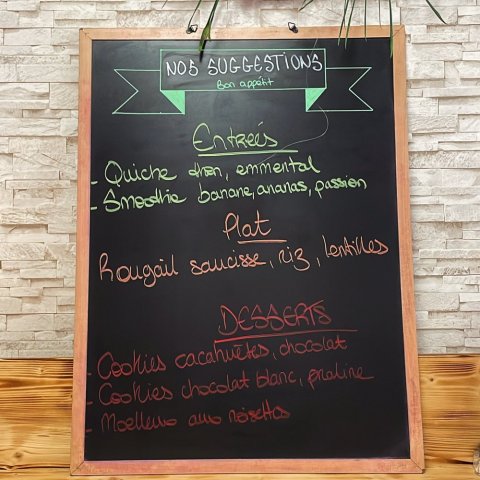 NOS SUGGESTIONS
Bon appétit
Entrées
- Quiche thon, emmental
- Smoothie banane, ananas, passion
Plat
Rougail saucisse, riz, lentilles
DESSERTS
- Cookies cacahuètes, chocolat
- Cookies chocolat blanc, praline
- Moelleux aux noisettes